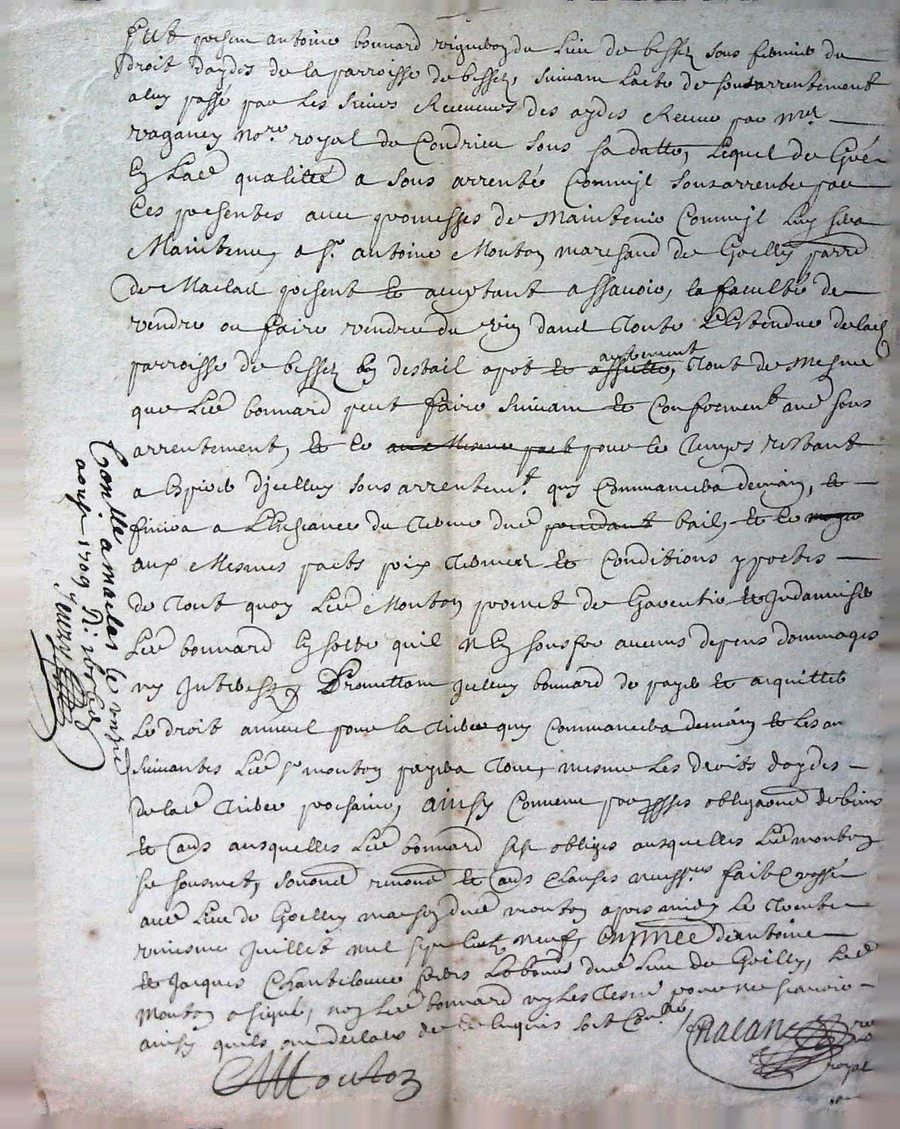 Fut présent antoine bonnard vigneron du lieu de bessey sous fermier du
droit daydes de la parroisse de bessey, suivant lacte de sousarrentement
a luy passé par les sieurs Receveurs des aydes Receue par me
vaganey nore royal de Condrieu sous sa datte, lequel de gré
En lade qualitté a sous arrenté Comm'jl sousarrente par
Ces presentes avec promesses de Maintenir Comm'jl luy sera
Maintenu, a sr. antoine Mouton marchand de Goelly parr
de Maclas présent et acceptant assavoir, la faculté de
vendre ou faire vendre du vin dans Toute L'Estendue de lad
parroisse de bessey En destail a pot et assiette, Tout de Mesme
autrement
que Led bonnard peut faire suivant et Conforment aud sous
arrentement, et ce aux Mesmes pact pour le Temps restant
a Expirer d'jcelluy sous arrentemt. qui Commancera demain, et
finira a L'Escheance du Terme dud bail, et ce
aux Mesmes pacts prix Termes et Conditions y portés
de Tout quoy Led Mouton promet de Garentir et Indamniser
Led bonnard En sorte quil n'En souffre aucuns depens dommages
ny Interest, Promettant Jcelluy bonnard de payer et acquitter
Le droit annuel pour la qui Commancera demain et Les an
suivantes Led sr mouton payera mesme Les droits daydes
de lad prochaine, ainsy Convenu par obligaon de biens
et Cours ausquelles Led bonnard sest obligés ausquelles Led mouton
se sousmet, Renon et Clauses fait & passé
aud Lieu de Goelly maison dud mouton apres midy Le Trente
uniesme Juillet mil sept Cent neuf, En d'antoine
et Jacques Chantelouve frers dud lieu de Goelly, Led
Mouton a signé, non Led bonnard ny les Tesms pour ne scavoir
ainsy quils ont declaré de ce Enquis soit Conllé
Mouton
Chalan
royal
Conllé a maclas le
aoust 1709